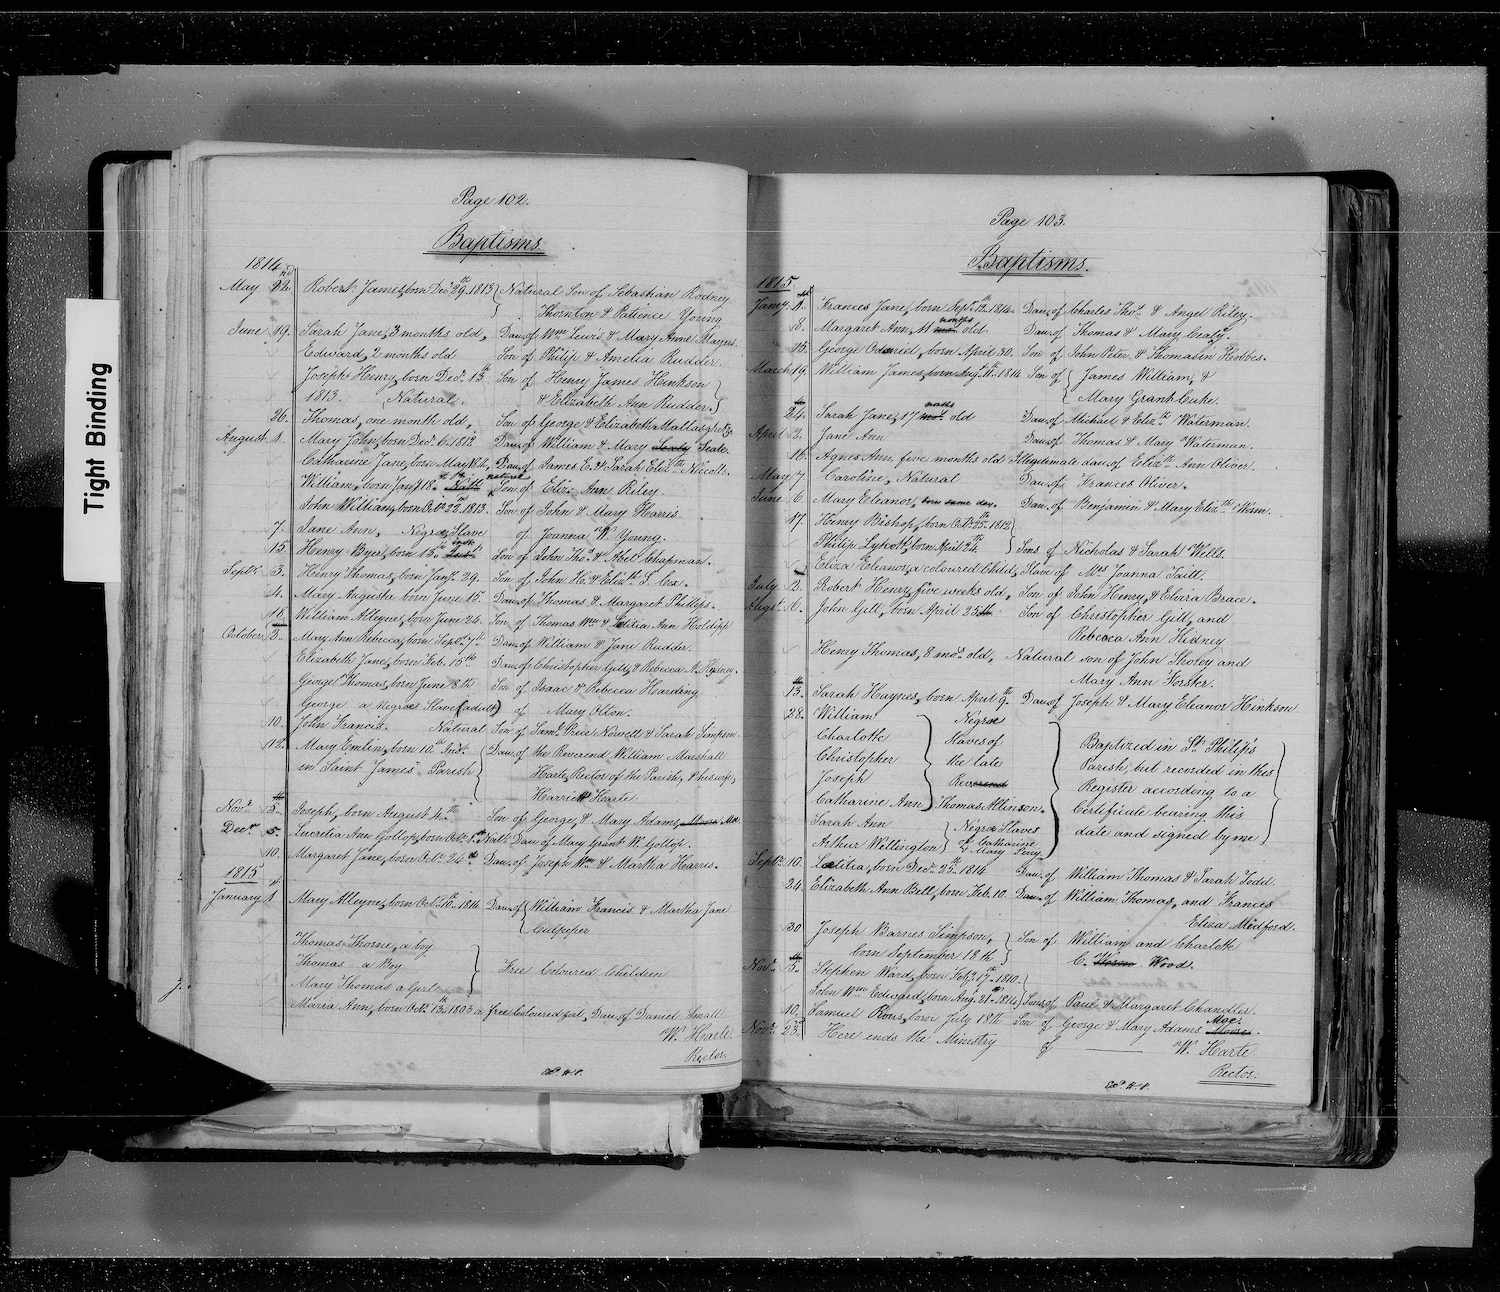 Tight Binding
Page 102.
Baptisms.
1814
May 22nd. Robert James, born Decr 29th 1813 } Natural Son of Sebastian Rodney
Thornton & Patience Young
June 19. Sarah Jane, 3 months old, Dau. of Wm Lewis & Mary Anne Mayers.
Edward, 2 months old Son of Philip & Amelia Rudder.
Joseph Henry, born Dec. 13th Son of Henry James Hinkson }
1813. Natural. & Elizabeth Ann Rudder. }
26. Thomas, one month old, Son of George & Elizabeth
August 1. Mary John, born Dec. 6. 1812 Dau. of William & Mary Seale.
Catharine Jane, born May Dau. of James E. & Sarah Elizth Nicoll.
William, born Jany 18th natural Son of Eliz. Ann Riley.
John William, born Octr 22nd 1813. Son of John & Mary Harris.
7. Jane Ann, Negroe Slave of Joanna W. Young.
15. Henry Byer, born 15th Son of John Thos. & Abel Chapman.
Septr 3. Henry Thomas, born Jany. 29. Son of John H. & Elizth S. Cox.
4. Mary Augusta born June 15 Dau. of Thomas & Margaret Phillips.
18. William Alleyne, born June 24. Son of Thomas Wm & Letitia Ann Holdipp
October 3. Mary Ann Rebecca, born Septr 7th Dau. of William & Jane Rudder.
Elizabeth Jane, born Feb. 15th Dau. of Christopher Gill, & Rebecca A.
George Thomas, born June 8th Son of Isaac & Rebecca Harding
George a Negroe Slave (adult) of Mary Olton.
10. John Francis. Natural Son of Saml. Price Newell & Sarah Simpson.
12. Mary Emlin, born 10th Inst. { Dau. of the Reverend William Marshall
in Saint James' Parish { Harte, Rector of the Parish, & his wife,
Harriett Harte.
Novr 5th Joseph, born August 4th Son of George, & Mary Adams,
Decr 5. Lucretia Ann Gollop, born Natl. Dau of Mary Grant W. Gollop.
10. Margaret Jane, born Octr 24th Dau. of Joseph Wm & Martha Harris.
1815
January 1st Mary Alleyne, born Oct. 10th 1814 Dau. of { William Francis & Martha Jane
Culpeper
Thomas Thorne, a boy }
Thomas a Boy } Free Coloured Children
Mary Thomas a Girl }
Maria Ann, born Octr 13th 1803 a free Coloured girl, Dau. of Daniel Small
W. Harte.
Rector.
Page 103.
Baptisms.
1815
Jany 1st Frances Jane, born Sept. 12th 1814 Dau. of Charles Thos. & Angel Riley.
8. Margaret Ann, 11 months old. Dau. of Thomas & Mary Cealy.
15. George Odaniel, born April 30. Son of John Peter, & Thomasin Hobbes.
March 19. William James, born Augt. 11th 1814 Son of { James William, &
Mary Grant Cuke.
24th Sarah Jane, 17 months old Dau. of Michael & Elizth Waterman.
April 2. Jane Ann Dau. of Thomas & Mary Waterman.
16. Agnes Ann, five months old Illegitimate dau. of Elizth Ann Oliver.
May 7 Caroline, Natural Dau. of Frances Oliver.
June 6. Mary Eleanor, born same day. Dau. of Benjamin & Mary Elizth
17. Henry Bishop, born Octr 25th 1812 }
Philip Lycott, born April 24th } Sons of Nicholas & Sarah Wells.
Eliza Eleanor, a coloured Child, Slave of Mrs Joanna Taitt.
July 2. Robert Henry, five weeks old, Son of John Henry, & Elvira Brace.
Augst 6. John Gill, born April 25th Son of Christopher Gill, and
Rebecca Ann Hidney
Henry Thomas, 8 mos. old, Natural son of John Tholey and
Mary Ann Forster.
13th Sarah Haynes, born April 9th Dau. of Joseph & Mary Eleanor Hinkson
28. William } Negroe
Charlotte Slaves of Baptized in St Philip's
Christopher the late Parish, but recorded in this
Joseph Reverend Register according to a
Catharine Ann } Thomas Allinson. Certificate bearing this
Sarah Ann } Negroe Slaves date and signed by me
Arthur Wellington } of Catharine
& Mary Perry
Septr 10. Letitia, born Decr 25th 1814 Dau. of William Thomas & Sarah Todd.
24. Elizabeth Ann Bell, born Feb. 10. Dau. of William Thomas, and Frances
Eliza Medford.
30 Joseph Barnes Simpson, } Son of William and Charlotte
born September 18th } C. Wood.
Novr 5th Stephen Ward, born Feby 17th 1810 }
John Wm Edward, born Augt 21st 1814 } Sons of Paul & Margaret Chandler.
10. Samuel Rous, born July 18th Son of George & Mary Adams Moe.
Novr 23rd Here ends the Ministry of W. Harte
Rector.